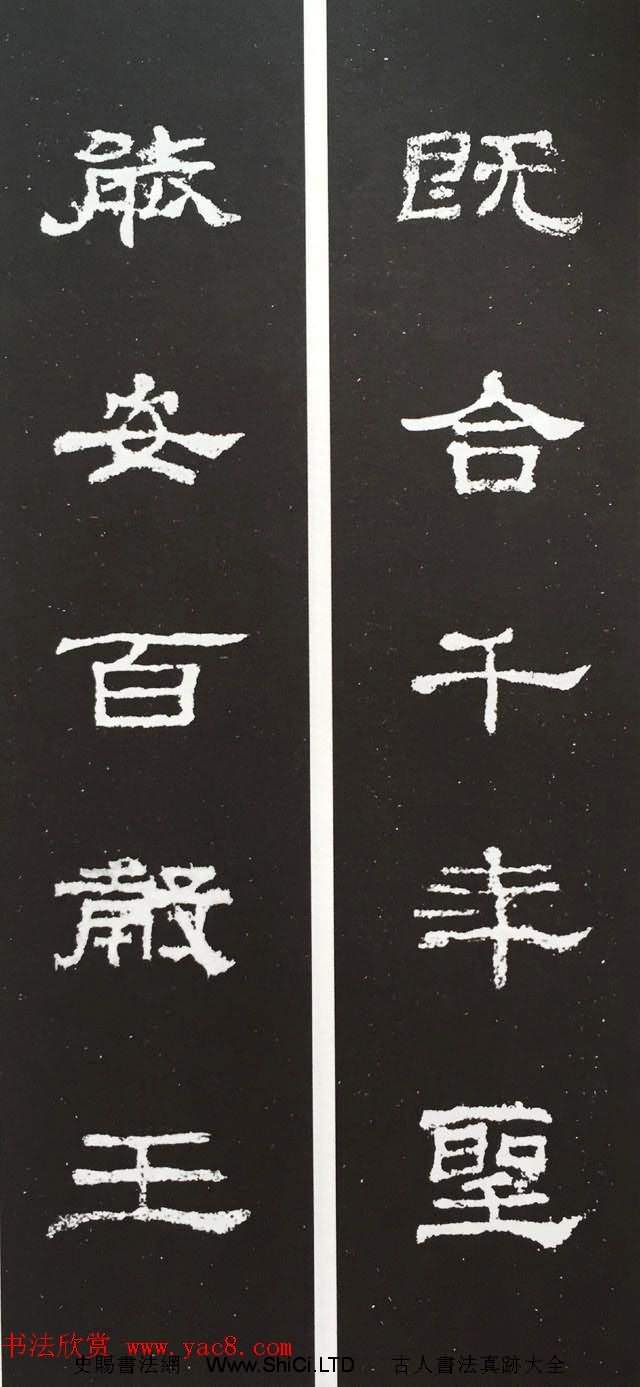 既合千年聖
能安百穀王
书法欣赏 www.yac8.com
史賜書法網 Www.ShiCi.LTD 古人書法真跡大全